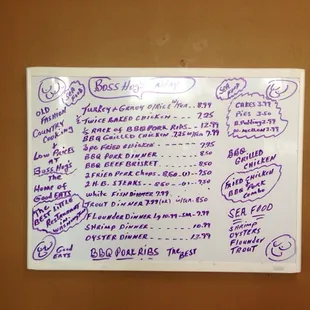 Boss Hog's
SEA FOOD
Turkey & Gravy o/Rice 8.99
½ Twice Baked Chicken - - 7.25
½ Rack of BBQ Pork Ribs - - 12.99
BBQ Grilled Chicken 7.25
3pc Fried Chicken - - - - 7.95
BBQ Pork Dinner - - - - 8.50
BBQ Beef Brisket - - - - 8.50
2 Fried Pork Chops
2 H.B. Steaks - - 8.50
White Fish Dinner - - 7.99
Trout Dinner
Flounder Dinner
Shrimp Dinner - - - - 10.99
Oyster Dinner - - - - 12.99
BBQ Pork Ribs The Best
OLD
FASHION
COUNTRY
COOKING
+
Low Prices
AT
Boss Hog's
The
Home of
Good EATS
The
BEST Little
Restaurant
IN
Good
EATS
SEA FOOD
CAKES 3.99
Pies 3.50
B. Pudding 2.99
BBQ
GRILLED
CHICKEN
Fried Chicken
BBQ
Pork
SEA FOOD
Shrimp
OYSTERS
Flounder
TROUT